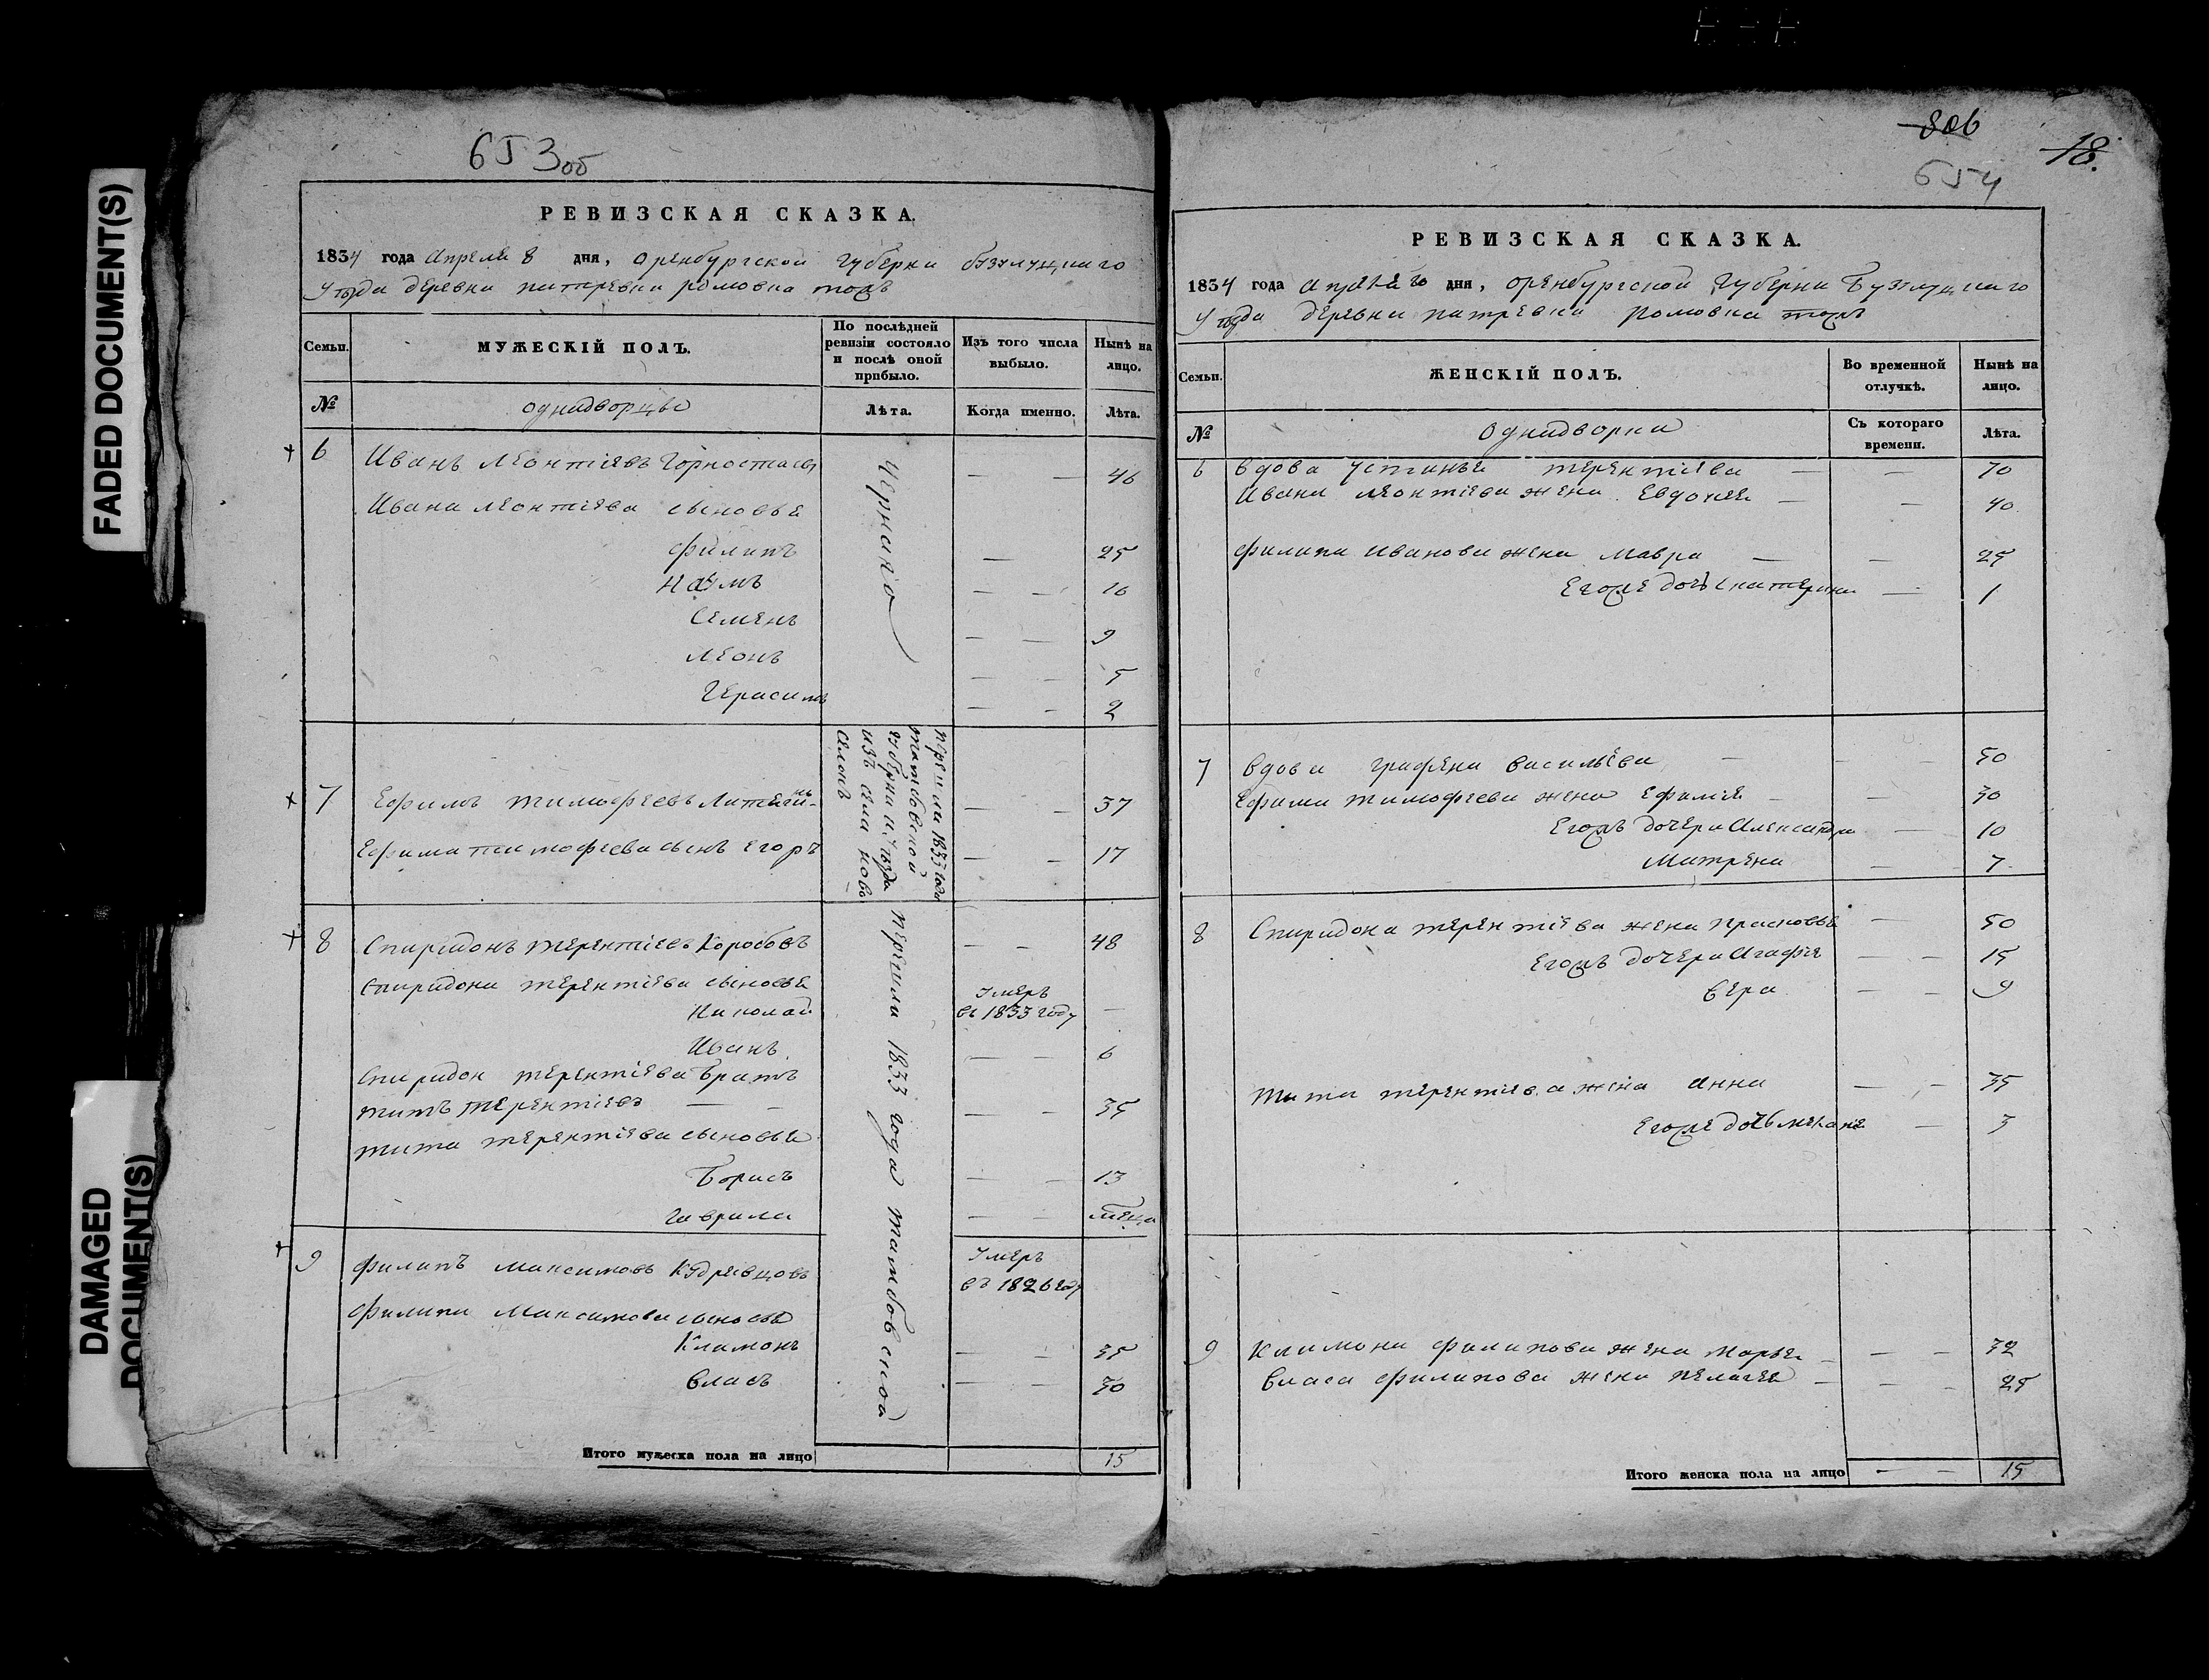 FADED DOCUMENT(S)
DAMAGED
DOCUMENT(S)
653об
РЕВИЗСКАЯ СКАЗКА.
1834 года Апреля 8 дня, Оренбургской Губерни
Уезда деревни ромовка тожъ
Семьи.
МУЖЕСКІЙ ПОЛЪ.
По послѣдней ревизіи состояло и послѣ оной прибыло.
Изъ того числа выбыло.
Нынѣ на лицо.
№
однидворцы
Лѣта.
Когда именно.
Лѣта.
6 Иванъ Леонтіевъ Горностаевъ — — 46
Ивана Леонтіева сыновья
Филипъ — 25
Наумъ — — 16
Семенъ — — 9
Леонъ — — 5
Герасимъ — — 2
перешли 1833 года
тамбовской
губерни
изъ села новъ
7 Ефимъ тимофеевъ — — 37
Ефима тимофеева сынъ Егоръ — — 17
перешли 1833 года тамбовской
8 Спиридонъ терентіевъ Коробовъ — — 48
Спиридона терентіева сыновья
Николай умеръ въ 1833 году —
Иванъ — — 6
Спиридон терентіева братъ
титъ терентіевъ — — — — 35
тита терентіева сыновья
Борисъ — — 13
Гаврила — —
9 Филипъ максимовъ Кудревцовъ умеръ въ 1826 году
Филипа Максимова сыновья
Климонъ — — 35
Власъ — — 30
Итого мужеска пола на лицо 15
806
18.
654
РЕВИЗСКАЯ СКАЗКА.
1834 года дня, Оренбургской Губерни
Уезда деревни ромовка тожъ
Семьи.
ЖЕНСКІЙ ПОЛЪ.
Во временной отлучкѣ.
Нынѣ на лицо.
№
Однидворки
Съ котораго времени.
Лѣта.
6 вдова Устинья терентіева — — 70
Ивана леонтіева жена Евдокея — — 40
Филипа Иванова жена Мавра — — 25
Егоже дочь катерина — 1
7 вдова графена васильева — — — 50
Ефима тимофеева жена Ефимія — — 30
Егожъ дочери Александра — 10
Матрена — — 7
8 Спиридона терентіева жена прасковья — 50
Егожъ дочери Агафія — — 15
вера — — 9
Тита терентіева жена Анна — — 35
Егоже дочь меланія — 3
9 Климона филипова жена марья — — — 32
власа филипова жена пелагея — — — 25
Итого женска пола на лицо — — 15